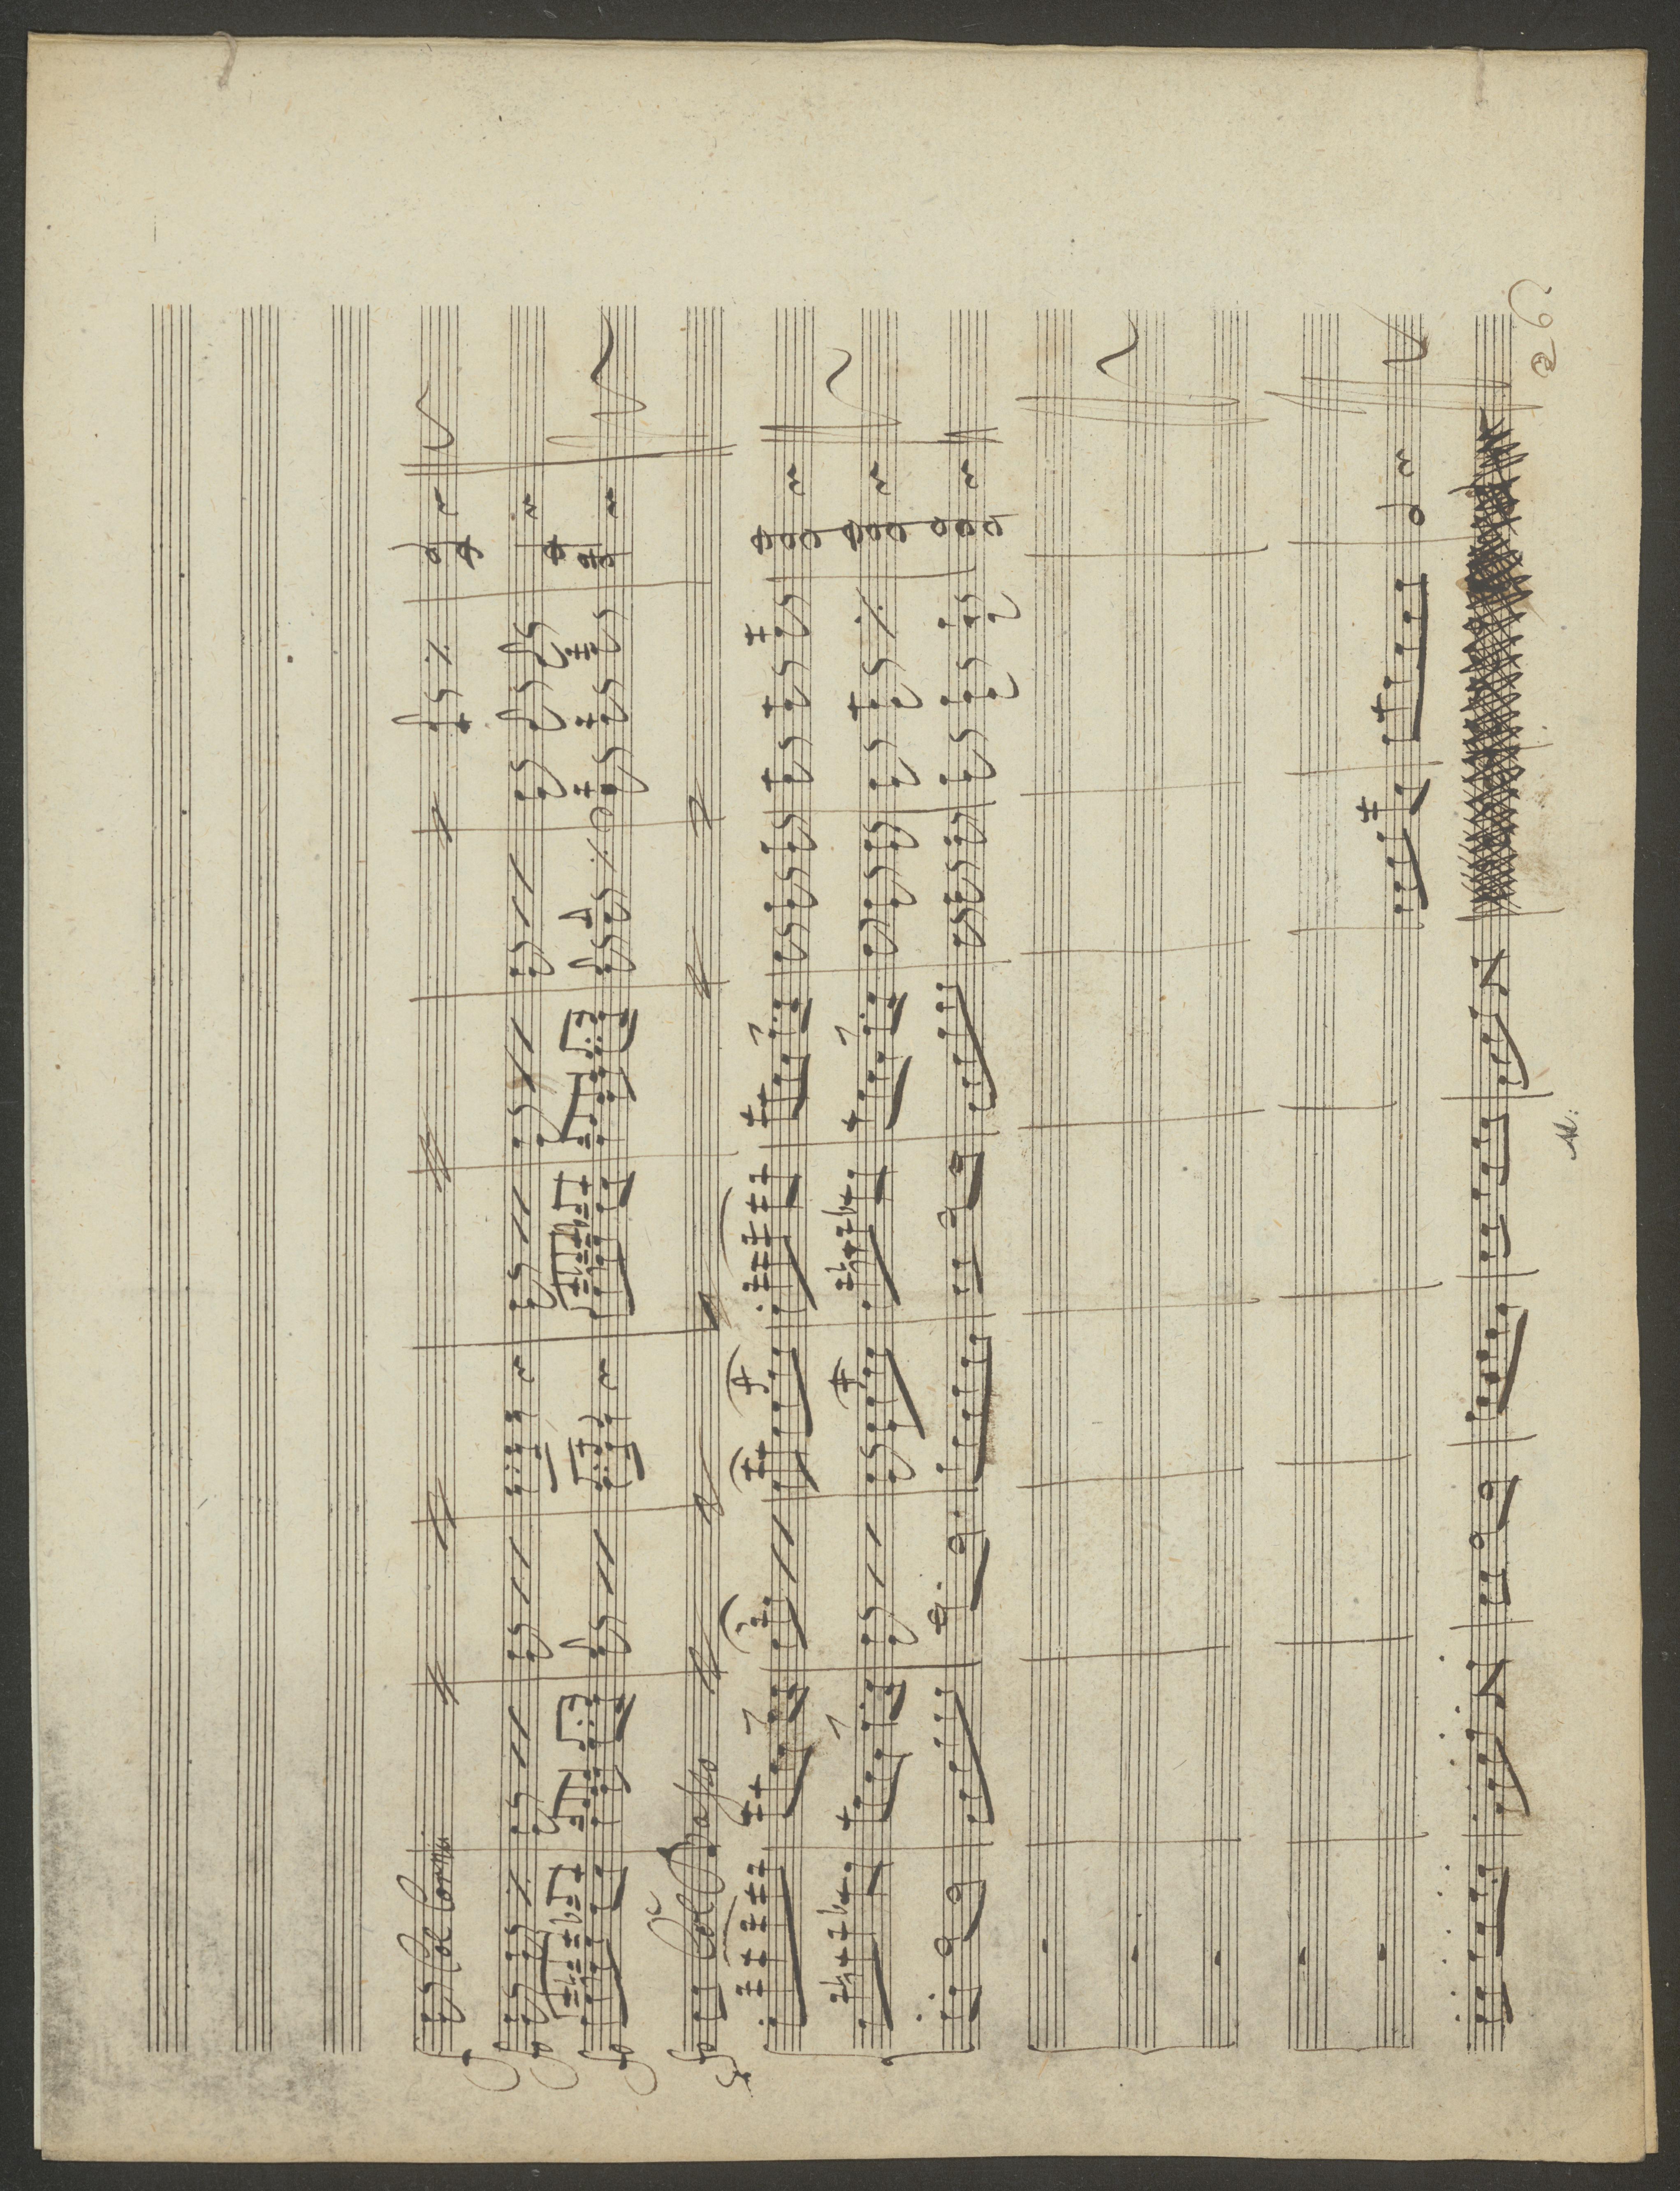 Col Corni
Col Basso
26